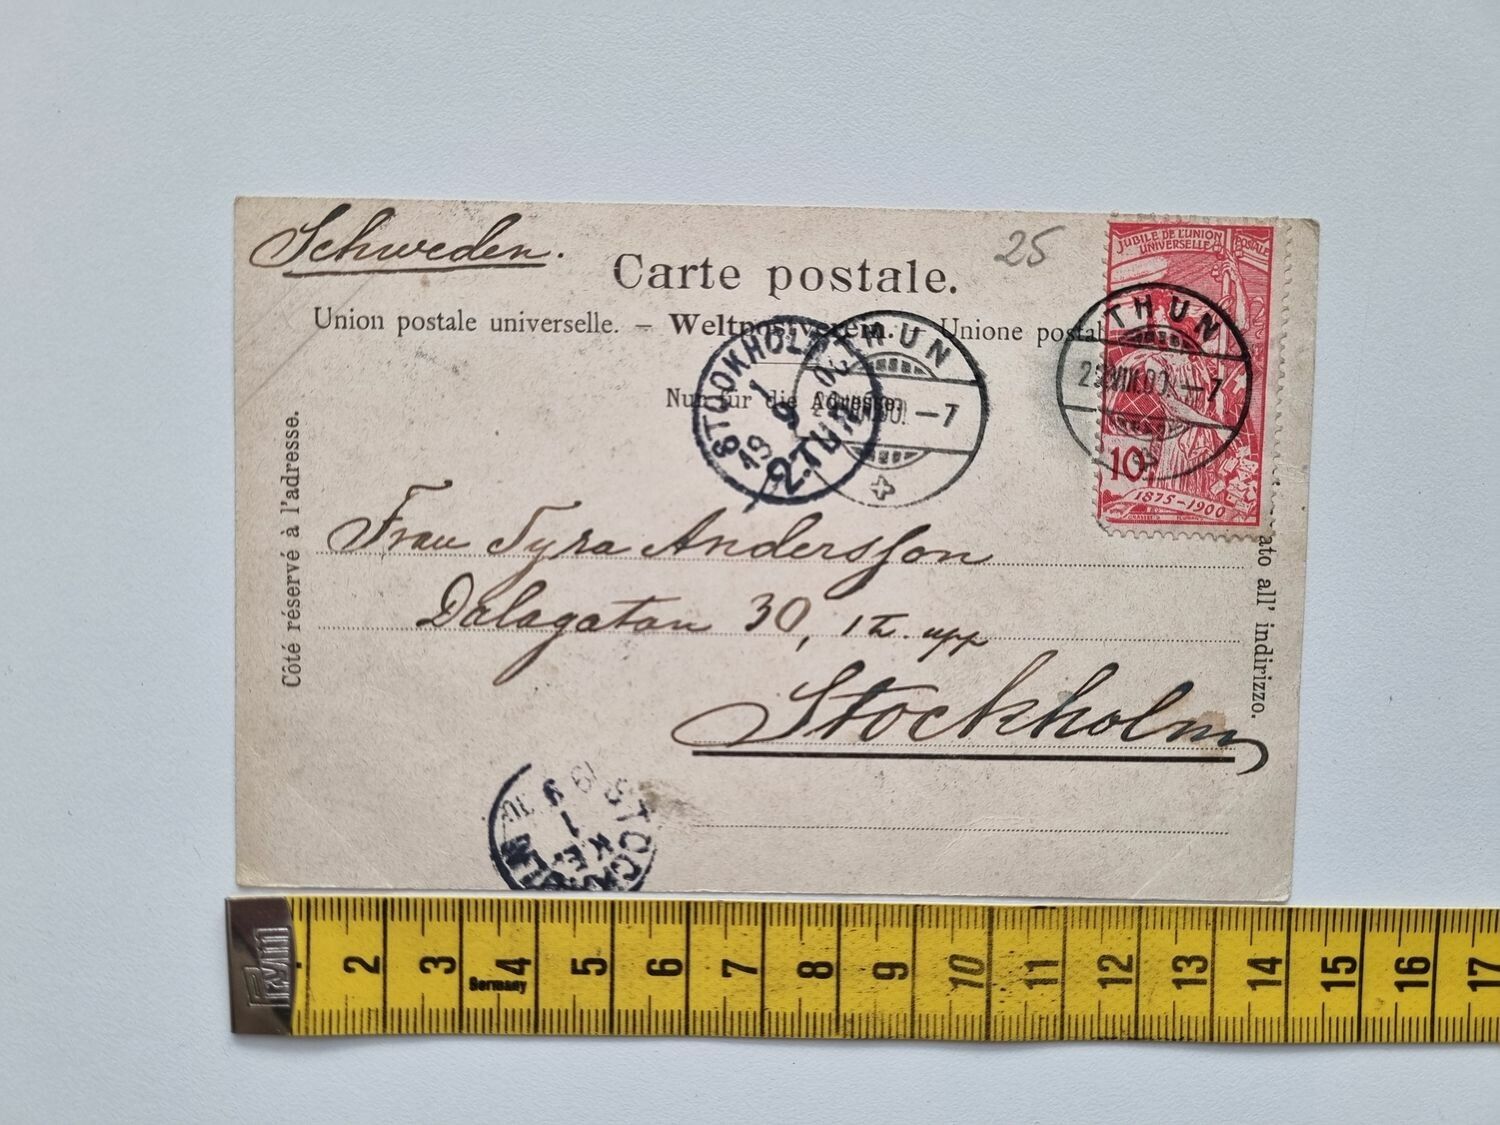 Schweden.
Carte postale.
25
JUBILÉ DE L'UNION POSTALE
UNIVERSELLE
Union postale universelle. – Weltpostverein. – Unione postal
Nur für die Adresse.
THUN
VIII.00.–7
THUN
–7
STOCKHOLM
1
9
1900
2.TUR
10
1875–1900
Côté réservé à l'adresse.
ato all' indirizzo.
Frau Tyra Andersson
Dalagatan 30, 1 tr. upp
Stockholm
STOCKHOLM
K.E.
1
9
19
Prym
Germany
2 3 4 5 6 7 8 9 10 11 12 13 14 15 16 17